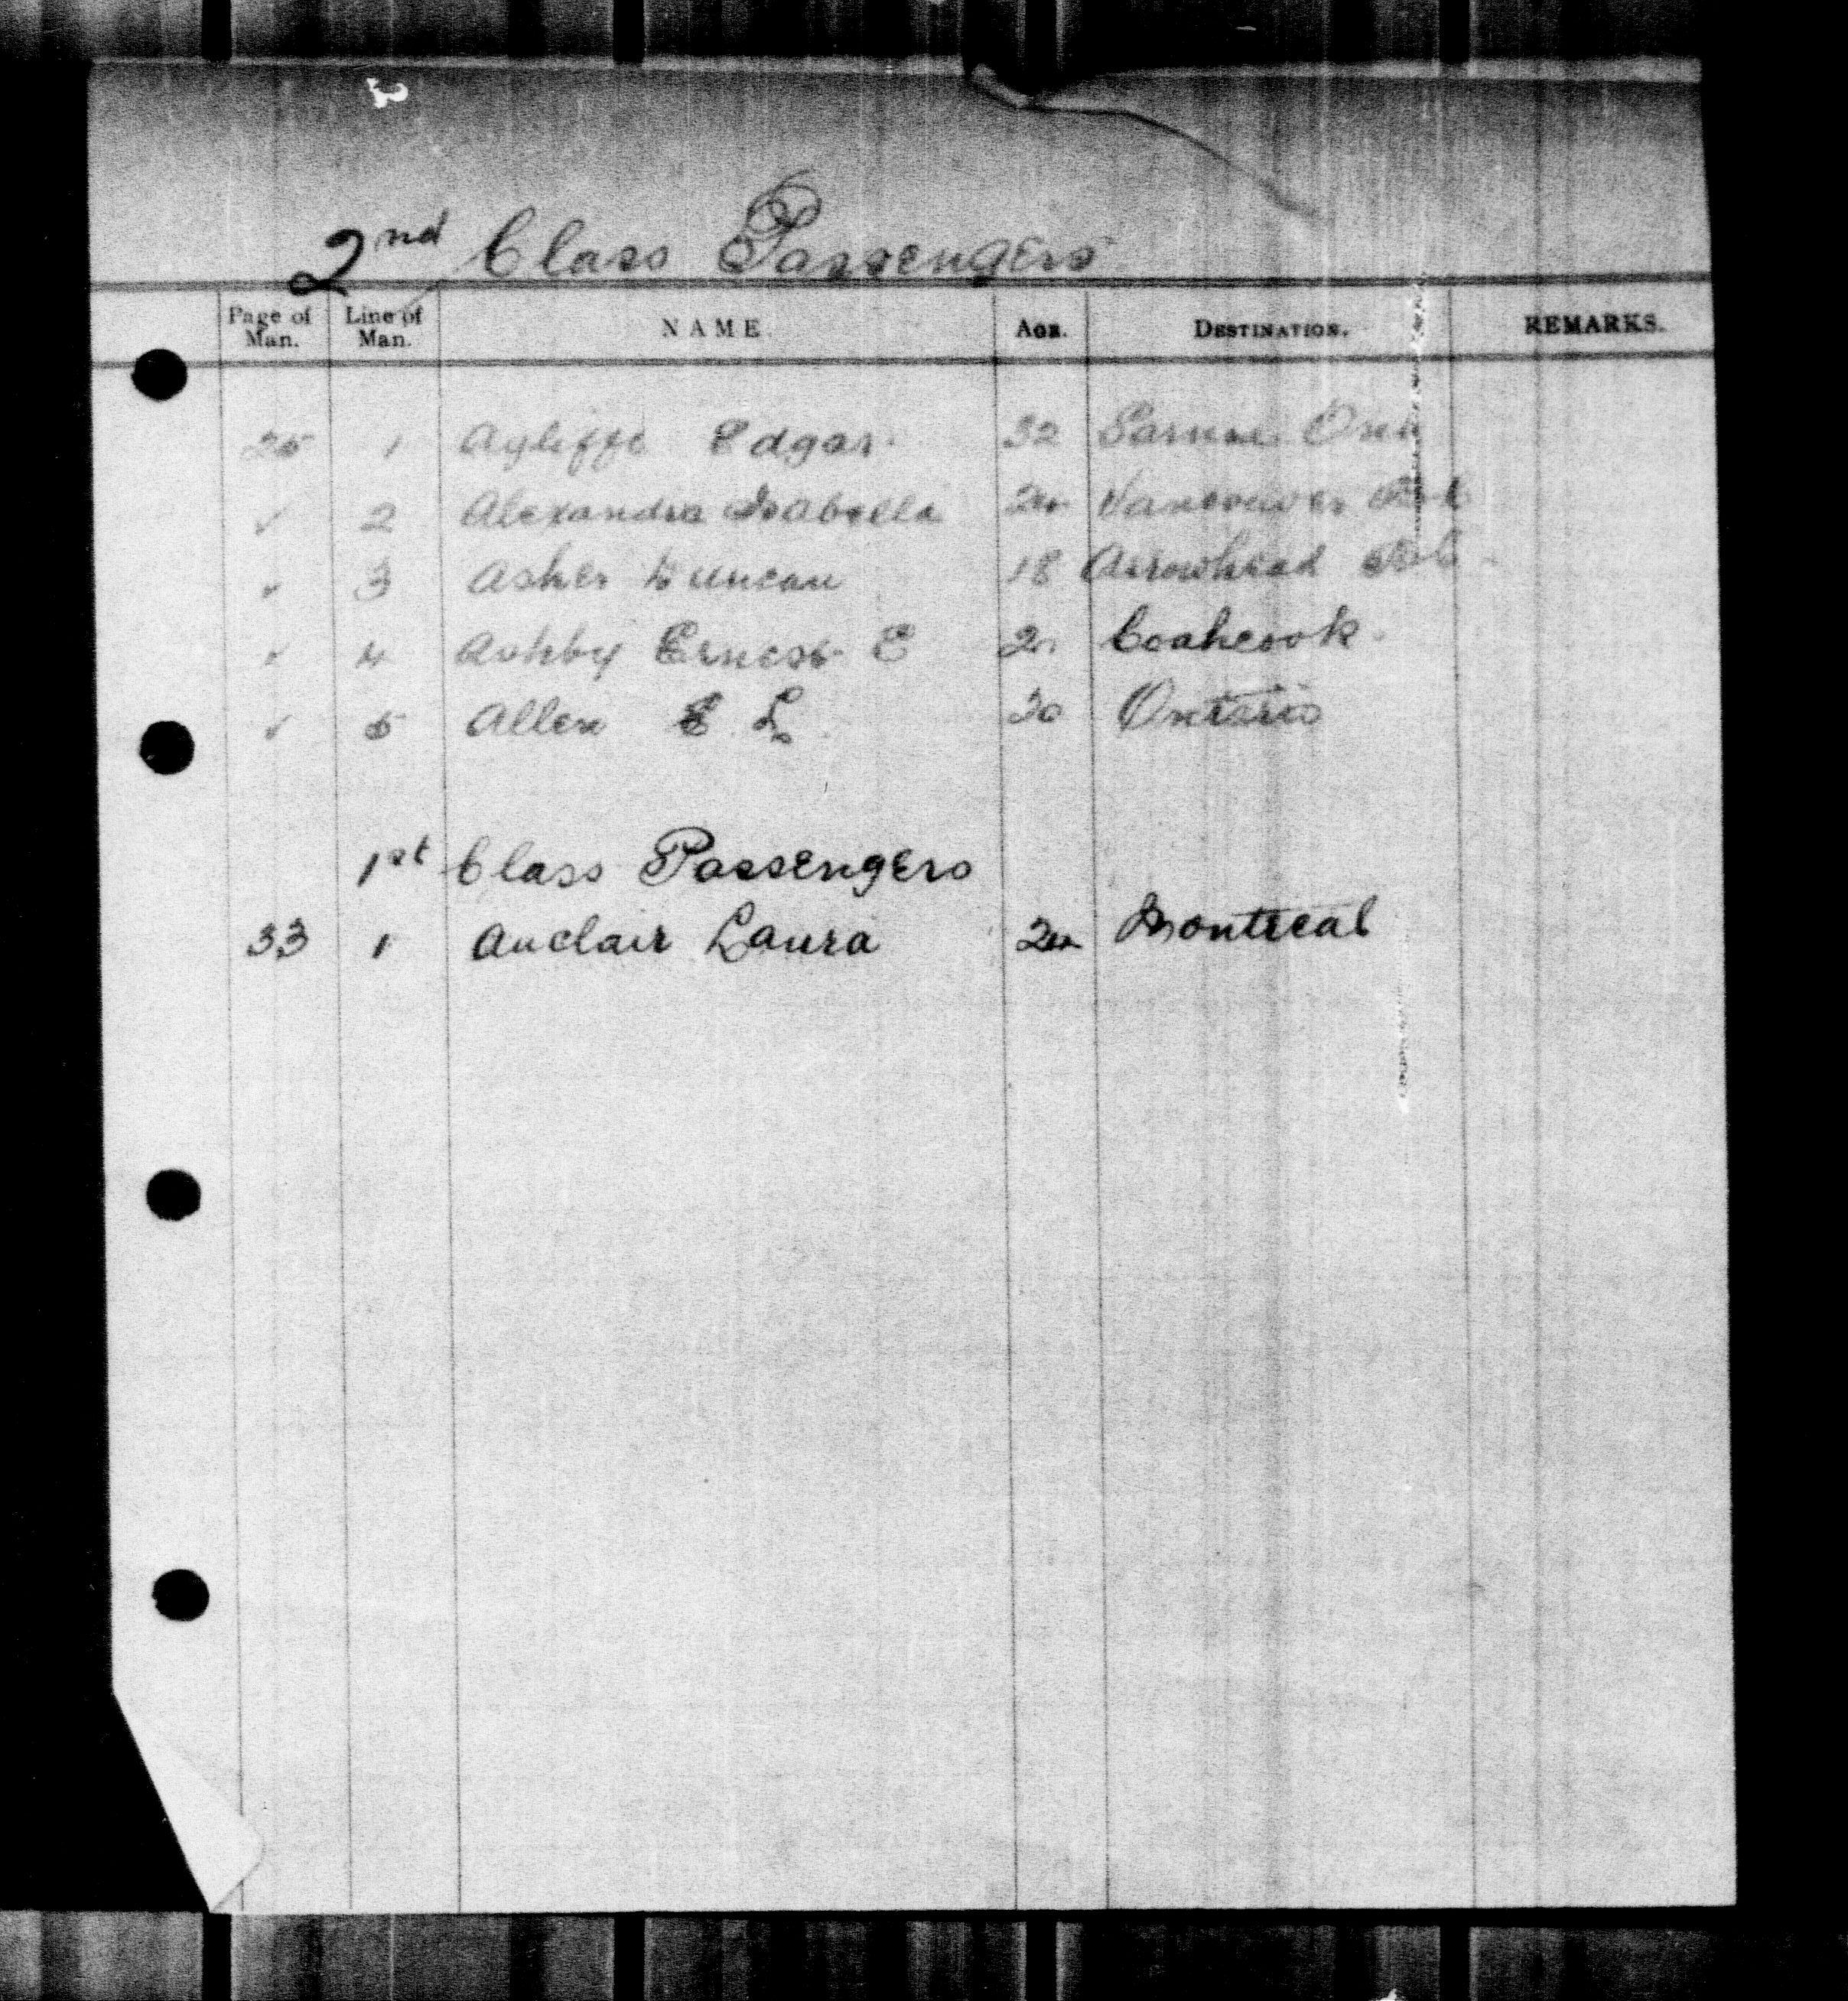 2nd Class Passengers
Page of Man. Line of Man. NAME. AGE. DESTINATION. REMARKS.
25 1 Ayliffe Edgar 32 Ont
✓ 2 Alexandra Isabella Vancouver B.C.
✓ 3 Asher Duncan 18 Arrowhead B.C.
✓ 4 Ashby Ernest E Coahcook
✓ 5 Allen E. L. 30 Ontario
1st Class Passengers
33 1 Auclair Laura Montreal